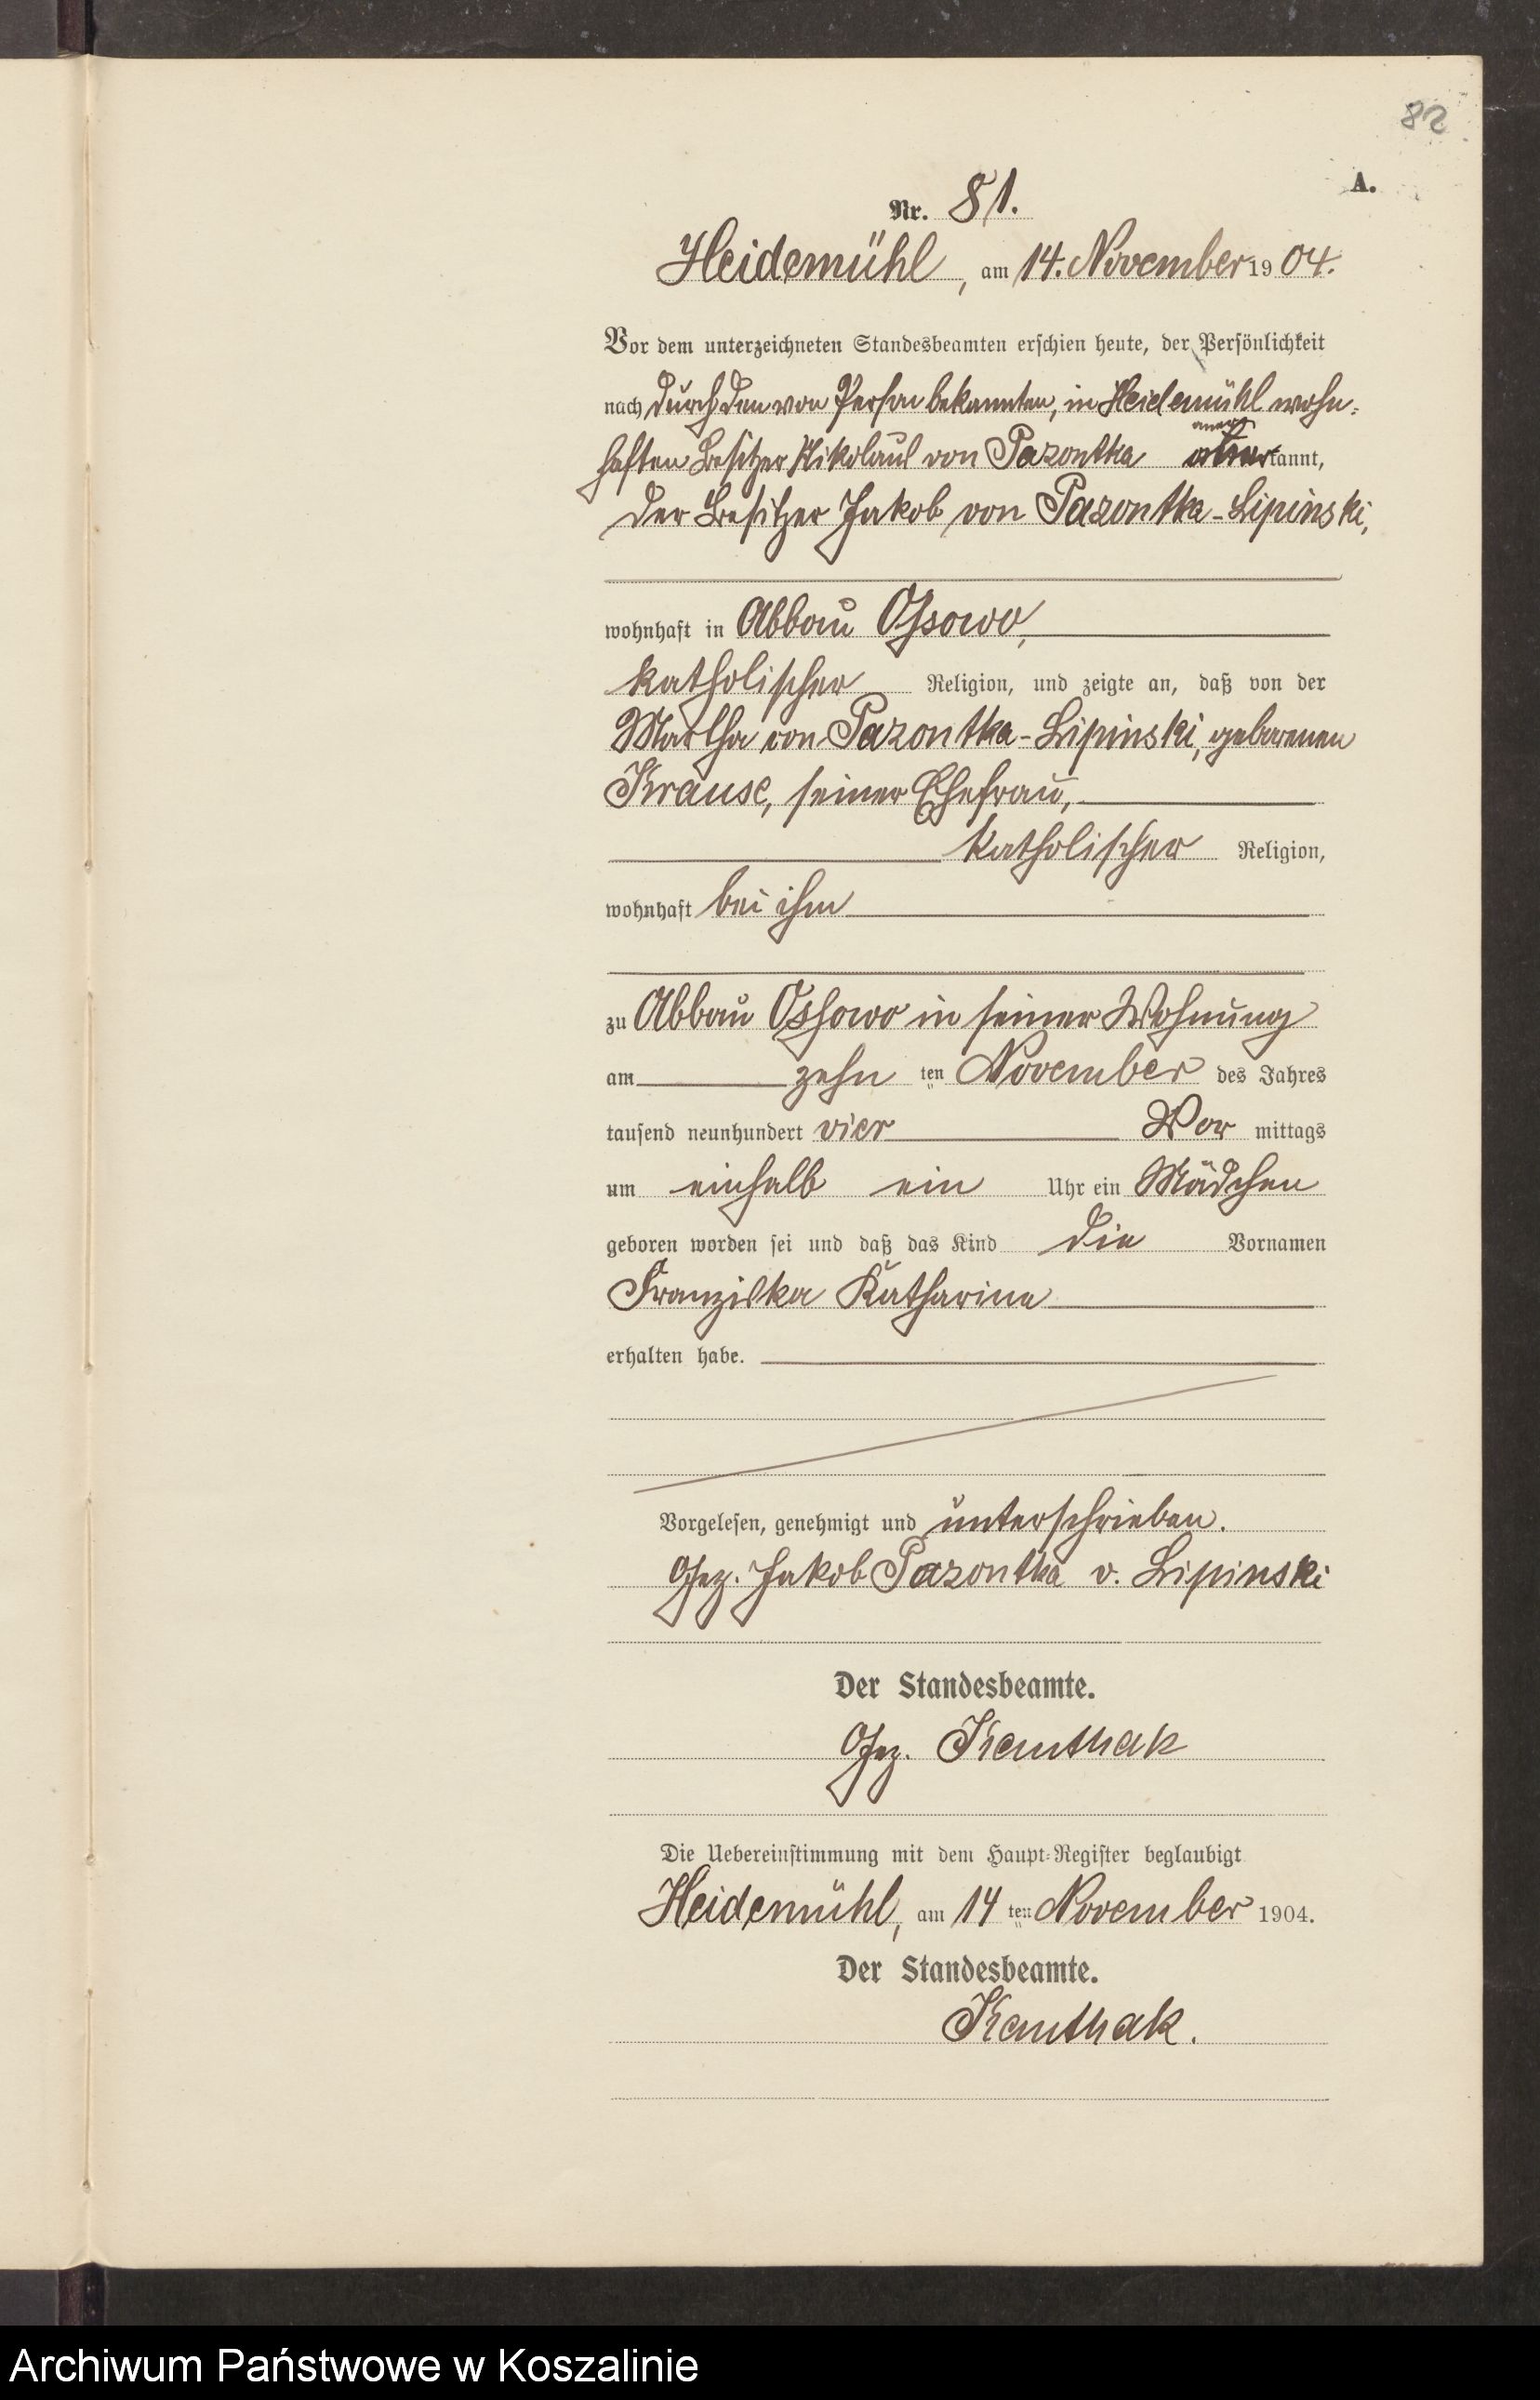 82
A.
Nr. 81.
Heidemühl, am 14. November 1904.
Vor dem unterzeichneten Standesbeamten erschien heute, der Persönlichkeit
nach durch den von Person bekannten, in Heidemühl wohn-
haften Besitzer Nikolaus von Pazontka kannt,
der Besitzer Jakob von Pazontka-Lipinski,
wohnhaft in Abbau Ossowo,
katholischer Religion, und zeigte an, daß von der
Martha von Pazontka-Lipinski, geborenen
Krause, seiner Ehefrau,
katholischer Religion,
wohnhaft bei ihm
zu Abbau Ossowo in seiner Wohnung
am zehn ten November des Jahres
tausend neunhundert vier Vor mittags
um einhalb ein Uhr ein Mädchen
geboren worden sei und daß das Kind die Vornamen
Franziska Katharina
erhalten habe.
Vorgelesen, genehmigt und unterschrieben.
Gez. Jakob Pazontka v. Lipinski
Der Standesbeamte.
Gez. Kauthak
Die Uebereinstimmung mit dem Haupt-Register beglaubigt
Heidemühl, am 14 ten November 1904.
Der Standesbeamte.
Kauthak.
Archiwum Państwowe w Koszalinie